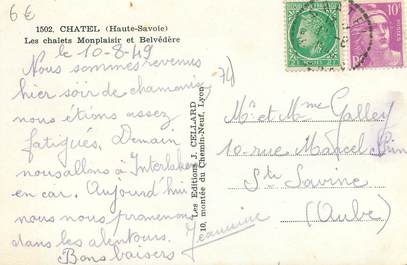 6€
1502. CHATEL (Haute-Savoie)
Les chalets Monplaisir et Belvédère
le 10-8-49
Nous sommes revenus
hier soir de chamonix
nous étions assez
fatigués. Demain
nous allons à Interlaken
en car. Aujourd'hui
nous nous promenons
dans les alentours.
Bons baisers
Jeannine
Les Editions J. CELLARD
10, montée du Chemin-Neuf, Lyon
10F
Mr et Mme Galley
10 rue Marcel
Ste Savine
(Aube)